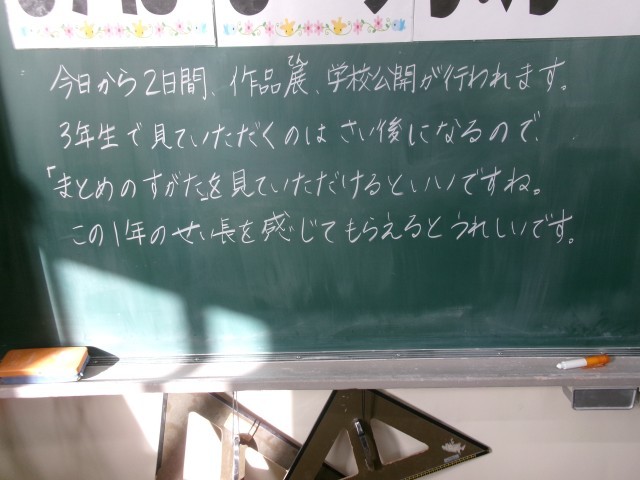 今日から2日間、作品展、学校公開が行われます。
3年生で見ていただくのは さい後になるので、
「まとめのすがた」を見ていただけるといいですね。
この1年のせい長を感じてもらえるとうれしいです。